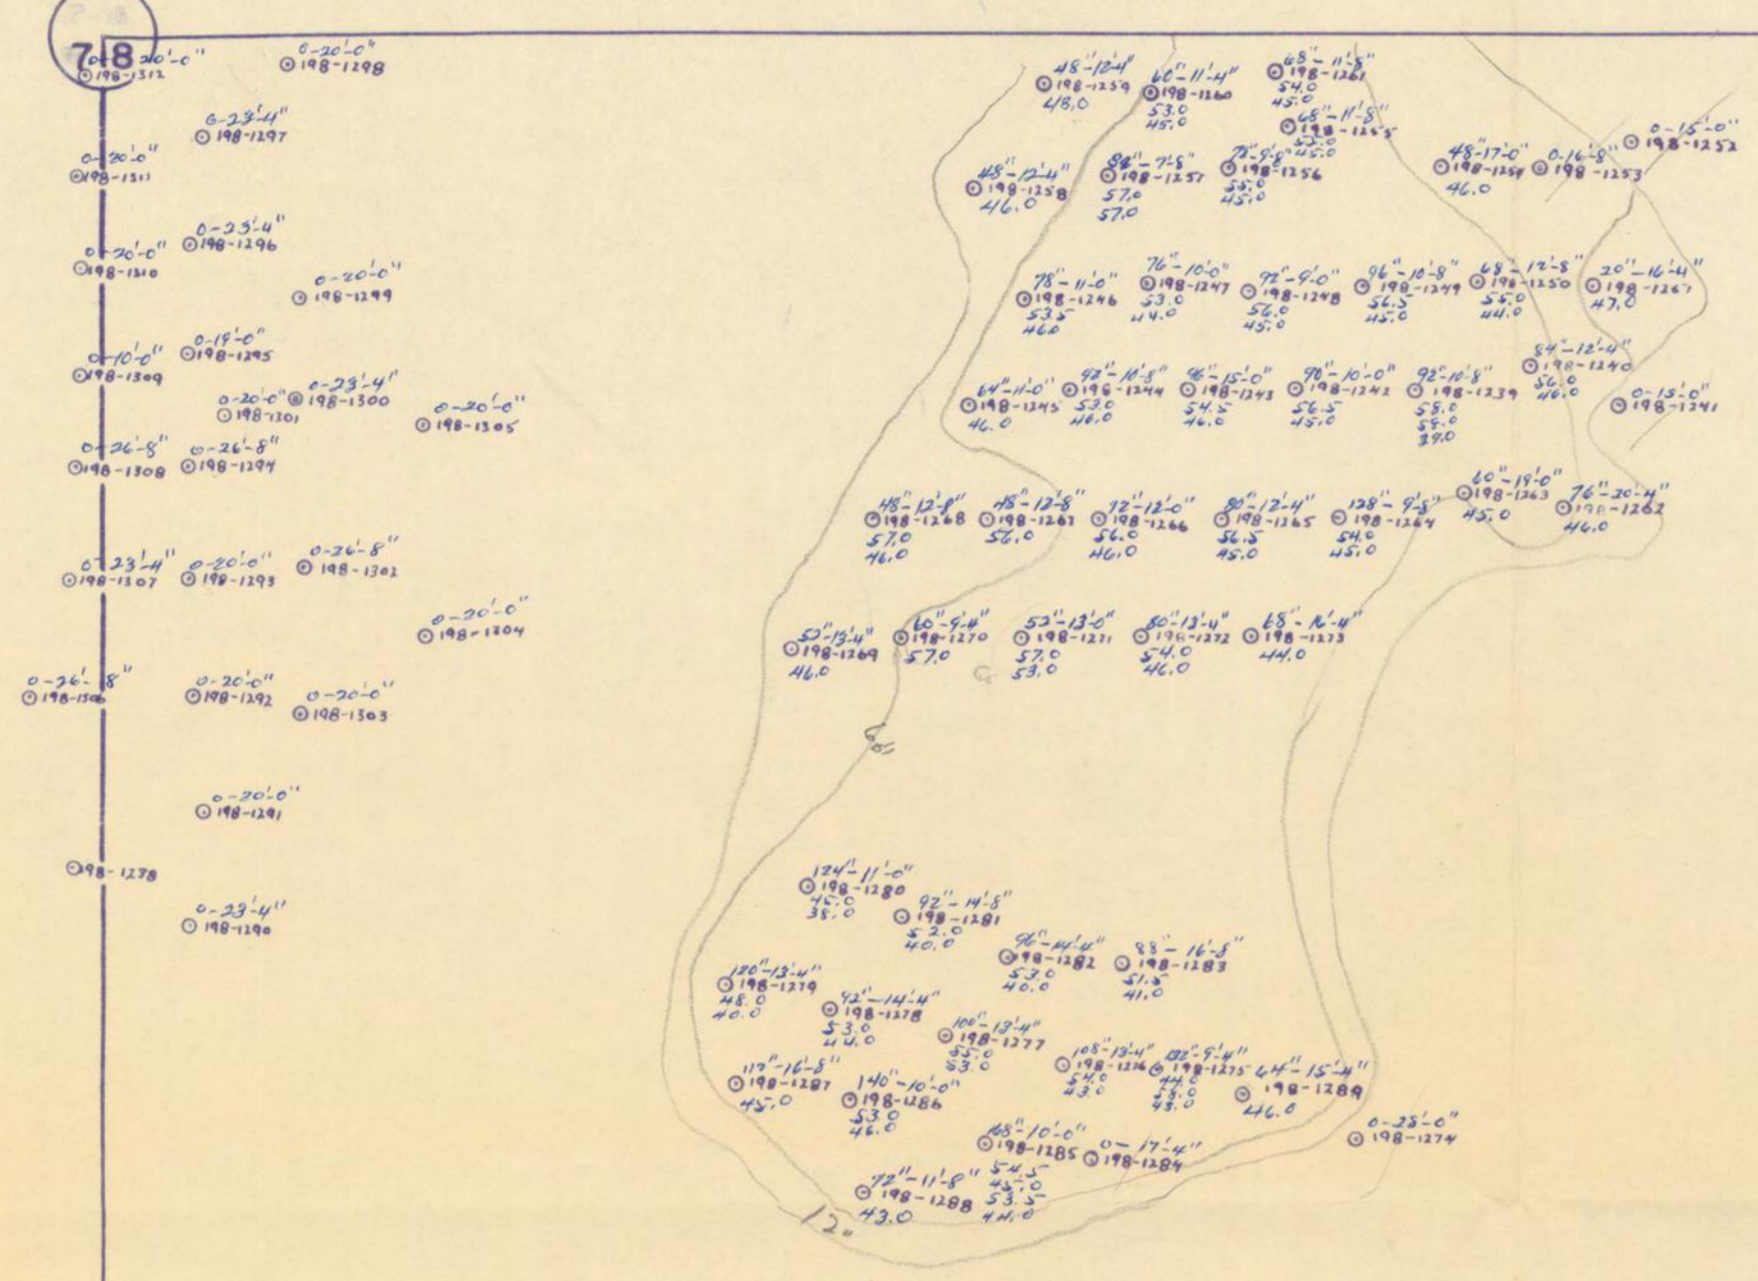 718
0-20'-0"
198-1312
0-20'-0"
198-1298
0-23'-4"
198-1297
0-20'-0"
198-1311
0-23'-4"
198-1296
0-20'-0"
198-1310
0-20'-0"
198-1299
0-19'-0"
198-1295
0-10'-0"
198-1309
0-23'-4"
198-1300
0-20'-0"
198-1301
0-20'-0"
198-1305
0-26'-8"
198-1308
0-26'-8"
198-1294
0-23'-4"
198-1307
0-20'-0"
198-1293
0-26'-8"
198-1302
0-20'-0"
198-1304
0-26'-8"
198-1306
0-20'-0"
198-1292
0-20'-0"
198-1303
0-20'-0"
198-1291
198-1238
0-23'-4"
198-1290
48"-12'-4"
198-1259
48.0
60"-11'-4"
198-1260
53.0
45.0
68"-11'-8"
198-1261
54.0
45.0
68"-11'-8"
198-1255
53.0
45.0
0-15'-0"
198-1252
48"-12'-4"
198-1258
46.0
84"-7'-8"
198-1257
57.0
57.0
72"-9'-8"
198-1256
55.0
45.0
48"-17'-0"
198-1254
46.0
0-16'-8"
198-1253
78"-11'-0"
198-1246
53.5
46.0
76"-10'-0"
198-1247
53.0
44.0
92"-9'-0"
198-1248
56.0
45.0
96"-10'-8"
198-1249
56.5
45.0
68"-12'-8"
198-1250
55.0
44.0
20"-16'-4"
198-1251
47.0
64"-11'-0"
198-1245
46.0
92"-10'-8"
198-1244
53.0
46.0
96"-15'-0"
198-1243
54.5
46.0
90"-10'-0"
198-1242
56.5
45.0
92"-10'-8"
198-1239
58.0
58.0
39.0
84"-12'-4"
198-1240
56.0
46.0
0-15'-0"
198-1241
48"-12'-8"
198-1268
57.0
46.0
48"-12'-8"
198-1267
56.0
72"-12'-0"
198-1266
56.0
46.0
80"-12'-4"
198-1265
56.5
45.0
128"-9'-8"
198-1264
54.0
45.0
60"-19'-0"
198-1263
45.0
76"-20'-4"
198-1262
46.0
52"-13'-4"
198-1269
46.0
60"-9'-4"
198-1270
57.0
52"-13'-0"
198-1271
57.0
53.0
80"-12'-4"
198-1272
54.0
46.0
68"-16'-4"
198-1273
44.0
60"
124"-11'-0"
198-1280
45.0
38.0
92"-14'-8"
198-1281
52.0
40.0
96"-14'-4"
198-1282
53.0
40.0
88"-16'-8"
198-1283
51.5
41.0
120"-13'-4"
198-1279
48.0
40.0
92"-14'-4"
198-1278
53.0
44.0
100"-13'-4"
198-1277
55.0
53.0
108"-13'-4"
198-1276
54.0
43.0
132"-9'-4"
198-1275
44.0
58.0
43.0
64"-15'-4"
198-1289
46.0
112"-16'-8"
198-1287
45.0
140"-10'-0"
198-1286
53.0
46.0
168"-10'-0"
198-1285
54.5
45.0
53.5
44.0
0-17'-4"
198-1284
0-25'-0"
198-1274
72"-11'-8"
198-1288
43.0
12.